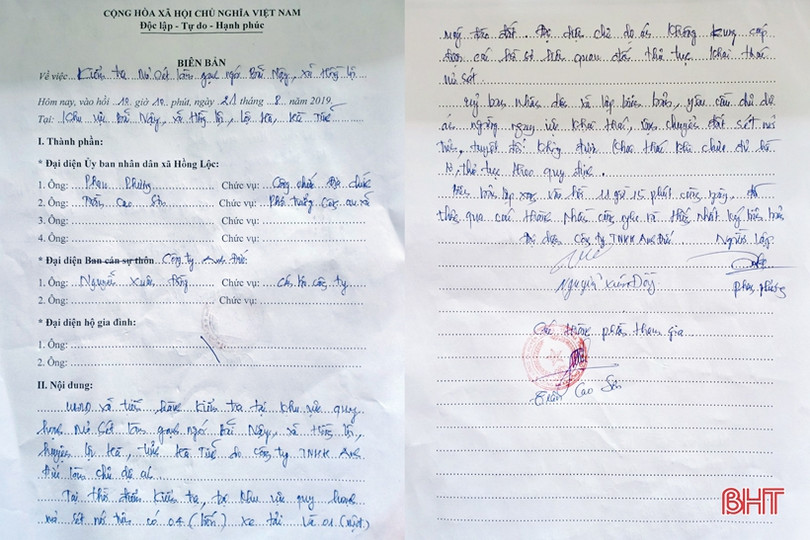 CỘNG HÒA XÃ HỘI CHỦ NGHĨA VIỆT NAM
Độc lập - Tự do - Hạnh phúc
BIÊN BẢN
Về việc Kiểm tra Mỏ sét làm gạch ngói xã Hồng Lộc
Hôm nay, vào hồi 10 giờ 10 phút, ngày 21 tháng 8 năm 2019
Tại: Khu vực xã Hồng Lộc, Lộc Hà, Hà Tĩnh
I. Thành phần:
* Đại diện Ủy ban nhân dân xã Hồng Lộc:
1. Ông: Phan Phường Chức vụ: Công chức Địa chính
2. Ông: Trần Cao Sơn Chức vụ: Phó trưởng Công an xã
3. Ông: Chức vụ:
4. Ông: Chức vụ:
* Đại diện Ban cán sự thôn Công ty Anh Đức
1. Ông: Nguyễn Xuân Đồng Chức vụ: Cán bộ công ty
2. Ông: Chức vụ:
* Đại diện hộ gia đình:
1. Ông:
2. Ông:
II. Nội dung:
UBND xã tiến hành kiểm tra tại khu vực quy
hoạch Mỏ sét làm gạch ngói xã Hồng Lộc,
huyện Lộc Hà, tỉnh Hà Tĩnh do công ty TNHH Anh
Đức làm chủ dự án.
Tại thời điểm kiểm tra, tại khu vực quy hoạch
mỏ sét nói trên có 04 (bốn) xe tải và 01 (một)
máy đào đất. Đại diện chủ dự án không cung cấp
được các hồ sơ liên quan đến thủ tục khai thác
mỏ sét.
Uỷ ban nhân dân xã lập biên bản, yêu cầu chủ dự
án ngừng ngay việc khai thác, vận chuyển đất sét nói
trên, tuyệt đối không được khai thác khi chưa đủ hồ
sơ, thủ tục theo quy định.
Biên bản lập xong vào hồi 11 giờ 15 phút cùng ngày, đã
thông qua các thành phần cùng nghe và thống nhất ký biên bản
Đại diện Công ty TNHH Anh Đức Người lập
Nguyễn Xuân Đồng Phan Phường
Các thành phần tham gia
Trần Cao Sơn
BHT